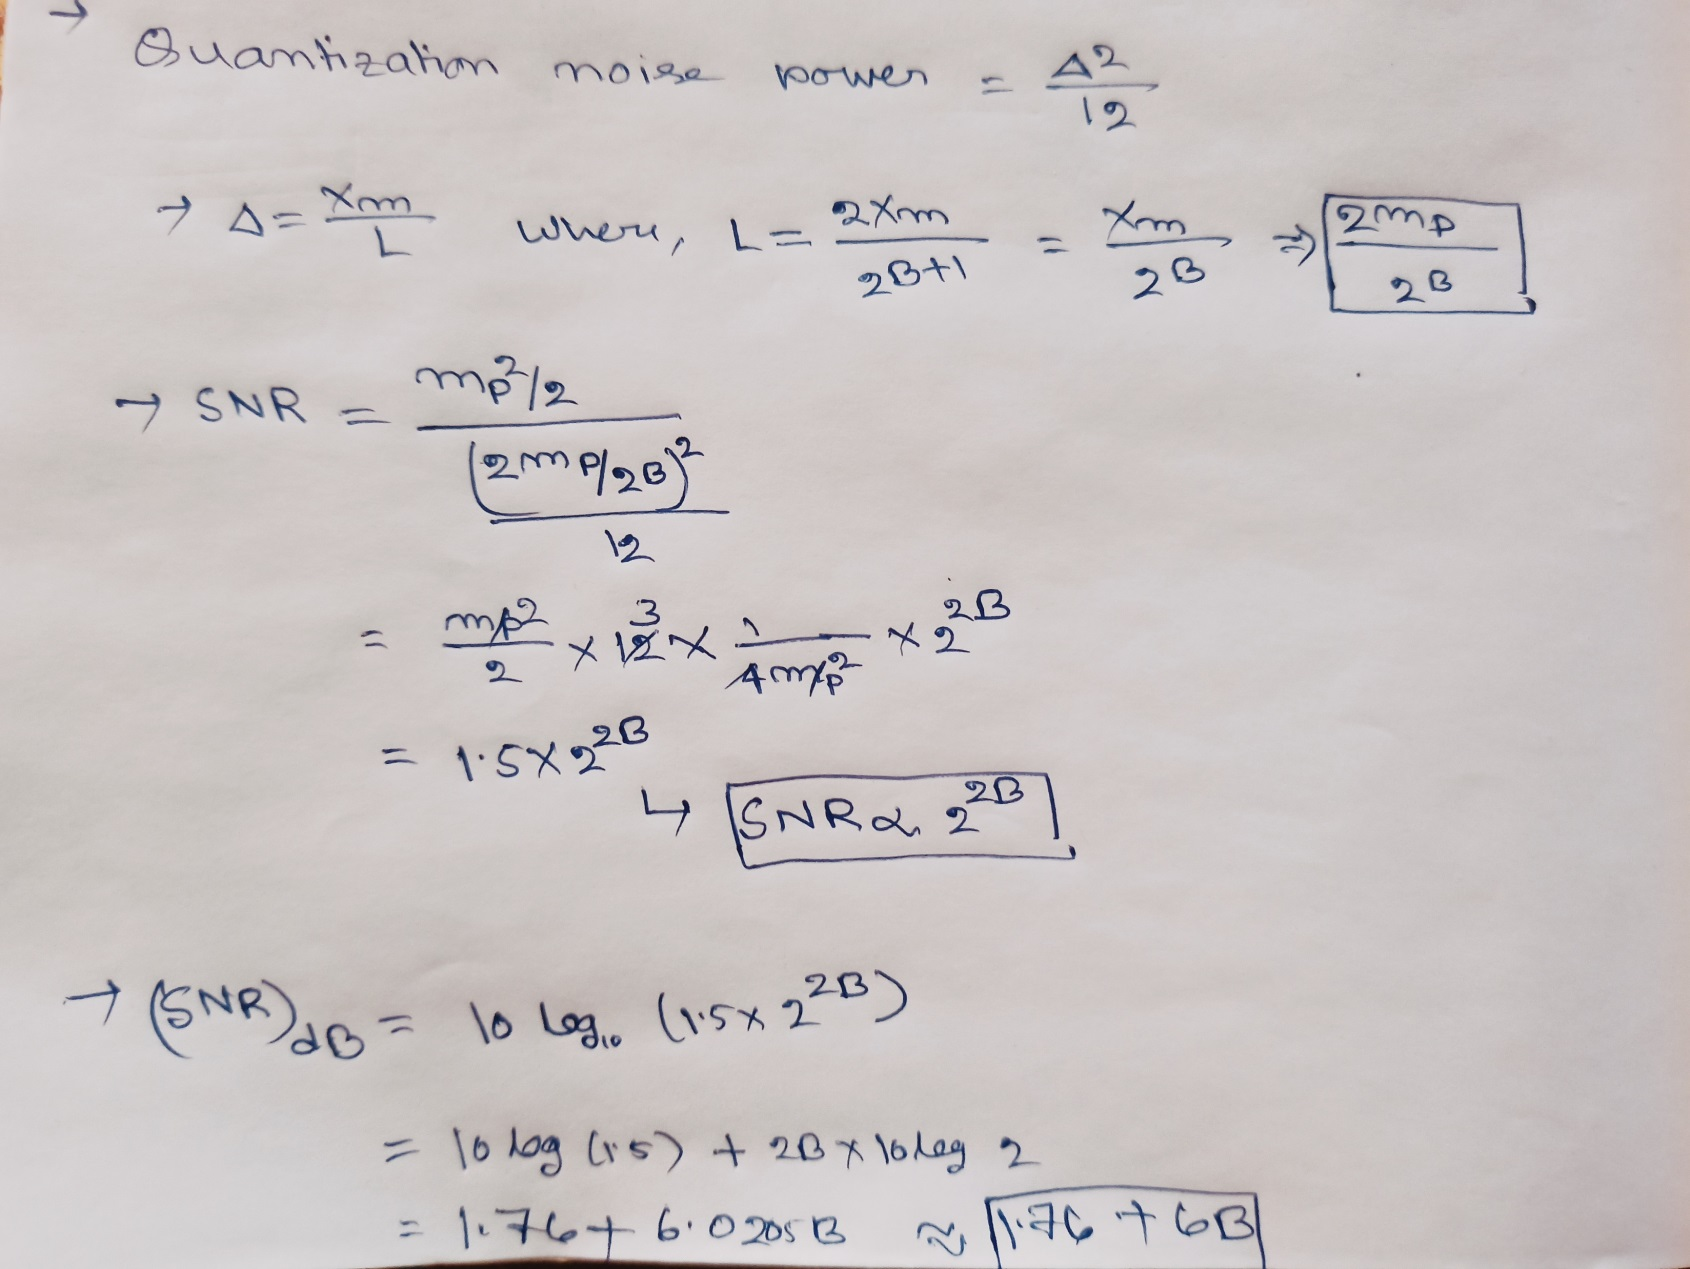 →
Quantization noise power = Δ²/12
→ Δ = Xm/L where, L = 2Xm/2B+1 = Xm/2B ⇒ 2mp/2B
→ SNR = mp²/2 / ((2mp/2B)²/12)
= mp²/2 × 12 3 × 1/4mp² × 2^2B
= 1.5 × 2^2B
↳ SNR α 2^2B
→ (SNR)dB = 10 log₁₀ (1.5 × 2^2B)
= 10 log (1.5) + 2B × 10 log 2
= 1.76 + 6.0205B ≈ 1.76 + 6B